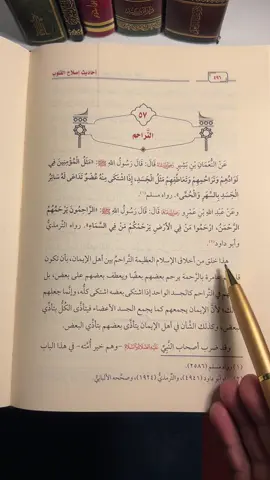 أحاديث إصلاح القلوب
٥٧
التَّراحم
عَنْ النُّعمَانِ بْنِ بَشِيرٍ قَالَ: قَالَ رَسُولُ اللهِ ﷺ: «مَثَلُ الْمُؤْمِنِينَ فِي
تَوَادِّهِمْ وَتَرَاحُمِهِمْ وَتَعَاطُفِهِمْ مَثَلُ الْجَسَدِ، إِذَا اشْتَكَى مِنْهُ عُضْوٌ تَدَاعَى لَهُ سَائِرُ
الْجَسَدِ بِالسَّهَرِ وَالْحُمَّى». رواه مسلم (١).
وعَنْ عَبْدِ اللهِ بْنِ عَمْرٍو قَالَ: قَالَ رَسُولُ اللهِ ﷺ: «الرَّاحِمُونَ يَرْحَمُهُمُ
الرَّحْمَنُ، ارْحَمُوا مَنْ فِي الْأَرْضِ يَرْحَمْكُمْ مَنْ فِي السَّمَاءِ». رواه الترمذيُّ
وأبو داود
هذا خلق من أخلاق الإسلام العظيمة التَّراحمُ بين أهل الإيمان، بأن تكون
بالرَّحمة يرحم بعضهم بعضًا ويعطف بعضهم على بعض، بل
في التَّراحم كالجسد الواحد إذا اشتكى بعضه اشتكى كلُّه، وإنَّما جعلهم
لأنَّ الإيمان يجمعهم كما يجمع الجسد الأعضاء فيتأذَّى الكلُّ بتأذِّي
بعض، وكذلك الشَّأن في أهل الإيمان يتأذَّى بعضهم بتأذِّي البعض.
وقد ضرب أصحاب النَّبيِّ -وهم خير أُمَّته- في هذا الباب
(١) مسلم (٢٥٨٦).
داود (٤٩٤١)، والترمذيُّ (١٩٢٤)، وصحَّحه الألبانيُّ.